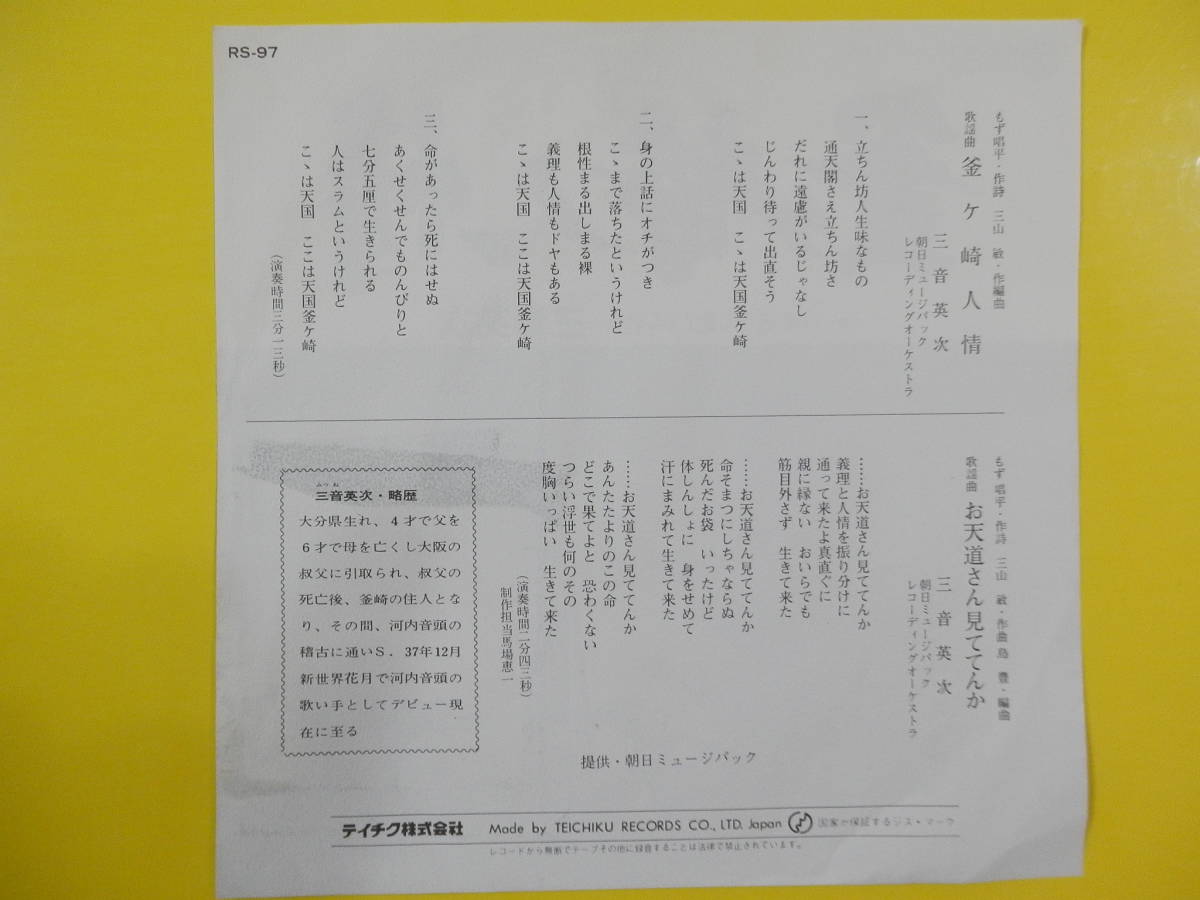 RS-97
もず唱平・作詩 三山 敏・作編曲
歌謡曲 釜ケ崎人情
三音英次
朝日ミュージパック
レコーディングオーケストラ
一、立ちん坊人生味なもの
通天閣さえ立ちん坊さ
だれに遠慮がいるじゃなし
じんわり待って出直そう
こゝは天国 こゝは天国釜ケ崎
二、身の上話にオチがつき
こゝまで落ちたというけれど
根性まる出しまる裸
義理も人情もドヤもある
こゝは天国 ここは天国釜ケ崎
三、命があったら死にはせぬ
あくせくせんでものんびりと
七分五厘で生きられる
人はスラムというけれど
こゝは天国 ここは天国釜ケ崎
(演奏時間三分一三秒)
もず唱平・作詩 三山 敏・作曲 島 豊・編曲
歌謡曲 お天道さん見ててんか
三音英次
朝日ミュージパック
レコーディングオーケストラ
……お天道さん見ててんか
義理と人情を振り分けに
通って来たよ真直ぐに
親に縁ない おいらでも
筋目外さず 生きて来た
……お天道さん見ててんか
命そまつにしちゃならぬ
死んだお袋 いったけど
体しんしょに 身をせめて
汗にまみれて生きて来た
……お天道さん見ててんか
あんたたよりのこの命
どこで果てよと 恐わくない
つらい浮世も何のその
度胸いっぱい 生きて来た
(演奏時間二分四三秒)
制作担当馬場恵一
みつね
三音英次・略歴
大分県生れ、4才で父を
6才で母を亡くし大阪の
叔父に引取られ、叔父の
死亡後、釜崎の住人とな
り、その間、河内音頭の
稽古に通いS.37年12月
新世界花月で河内音頭の
歌い手としてデビュー現
在に至る
提供・朝日ミュージパック
テイチク株式会社 Made by TEICHIKU RECORDS CO., LTD. Japan 国家が保証するジス・マーク
レコードから無断でテープその他に録音することは法律で禁止されています。